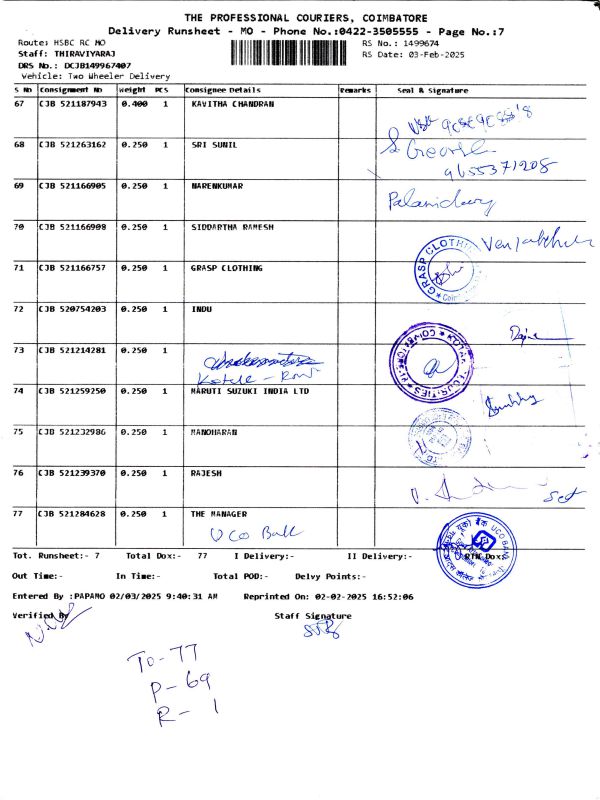 THE PROFESSIONAL COURIERS, COIMBATORE
Delivery Runsheet - MO - Phone No.:0422-3505555 - Page No.:7
Route: HSBC RC MO RS No.: 1499674
Staff: THIRAVIYARAJ RS Date: 03-Feb-2025
DRS No.: DCJB149967407
Vehicle: Two Wheeler Delivery
S No Consignment No Weight PCS Consignee Details Remarks Seal & Signature
67 CJB 521187943 0.400 1 KAVITHA CHANDRAN
68 CJB 521263162 0.250 1 SRI SUNIL
9655371208
69 CJB 521166905 0.250 1 NARENKUMAR
70 CJB 521166908 0.250 1 SIDDARTHA RAMESH
71 CJB 521166757 0.250 1 GRASP CLOTHING
GRASP CLOTHING
72 CJB 520754203 0.250 1 INDU
73 CJB 521214281 0.250 1
74 CJB 521259250 0.250 1 MARUTI SUZUKI INDIA LTD
75 CJB 521232986 0.250 1 MANOHARAN
76 CJB 521239370 0.250 1 RAJESH
77 CJB 521284628 0.250 1 THE MANAGER
UCO Bank
Tot. Runsheet:- 7 Total Dox:- 77 I Delivery:- II Delivery:- RTN Dox:
Out Time:- In Time:- Total POD:- Delvy Points:-
Entered By :PAPAMO 02/03/2025 9:40:31 AM Reprinted On: 02-02-2025 16:52:06
Verified By Staff Signature
To-77
P-69
R-1